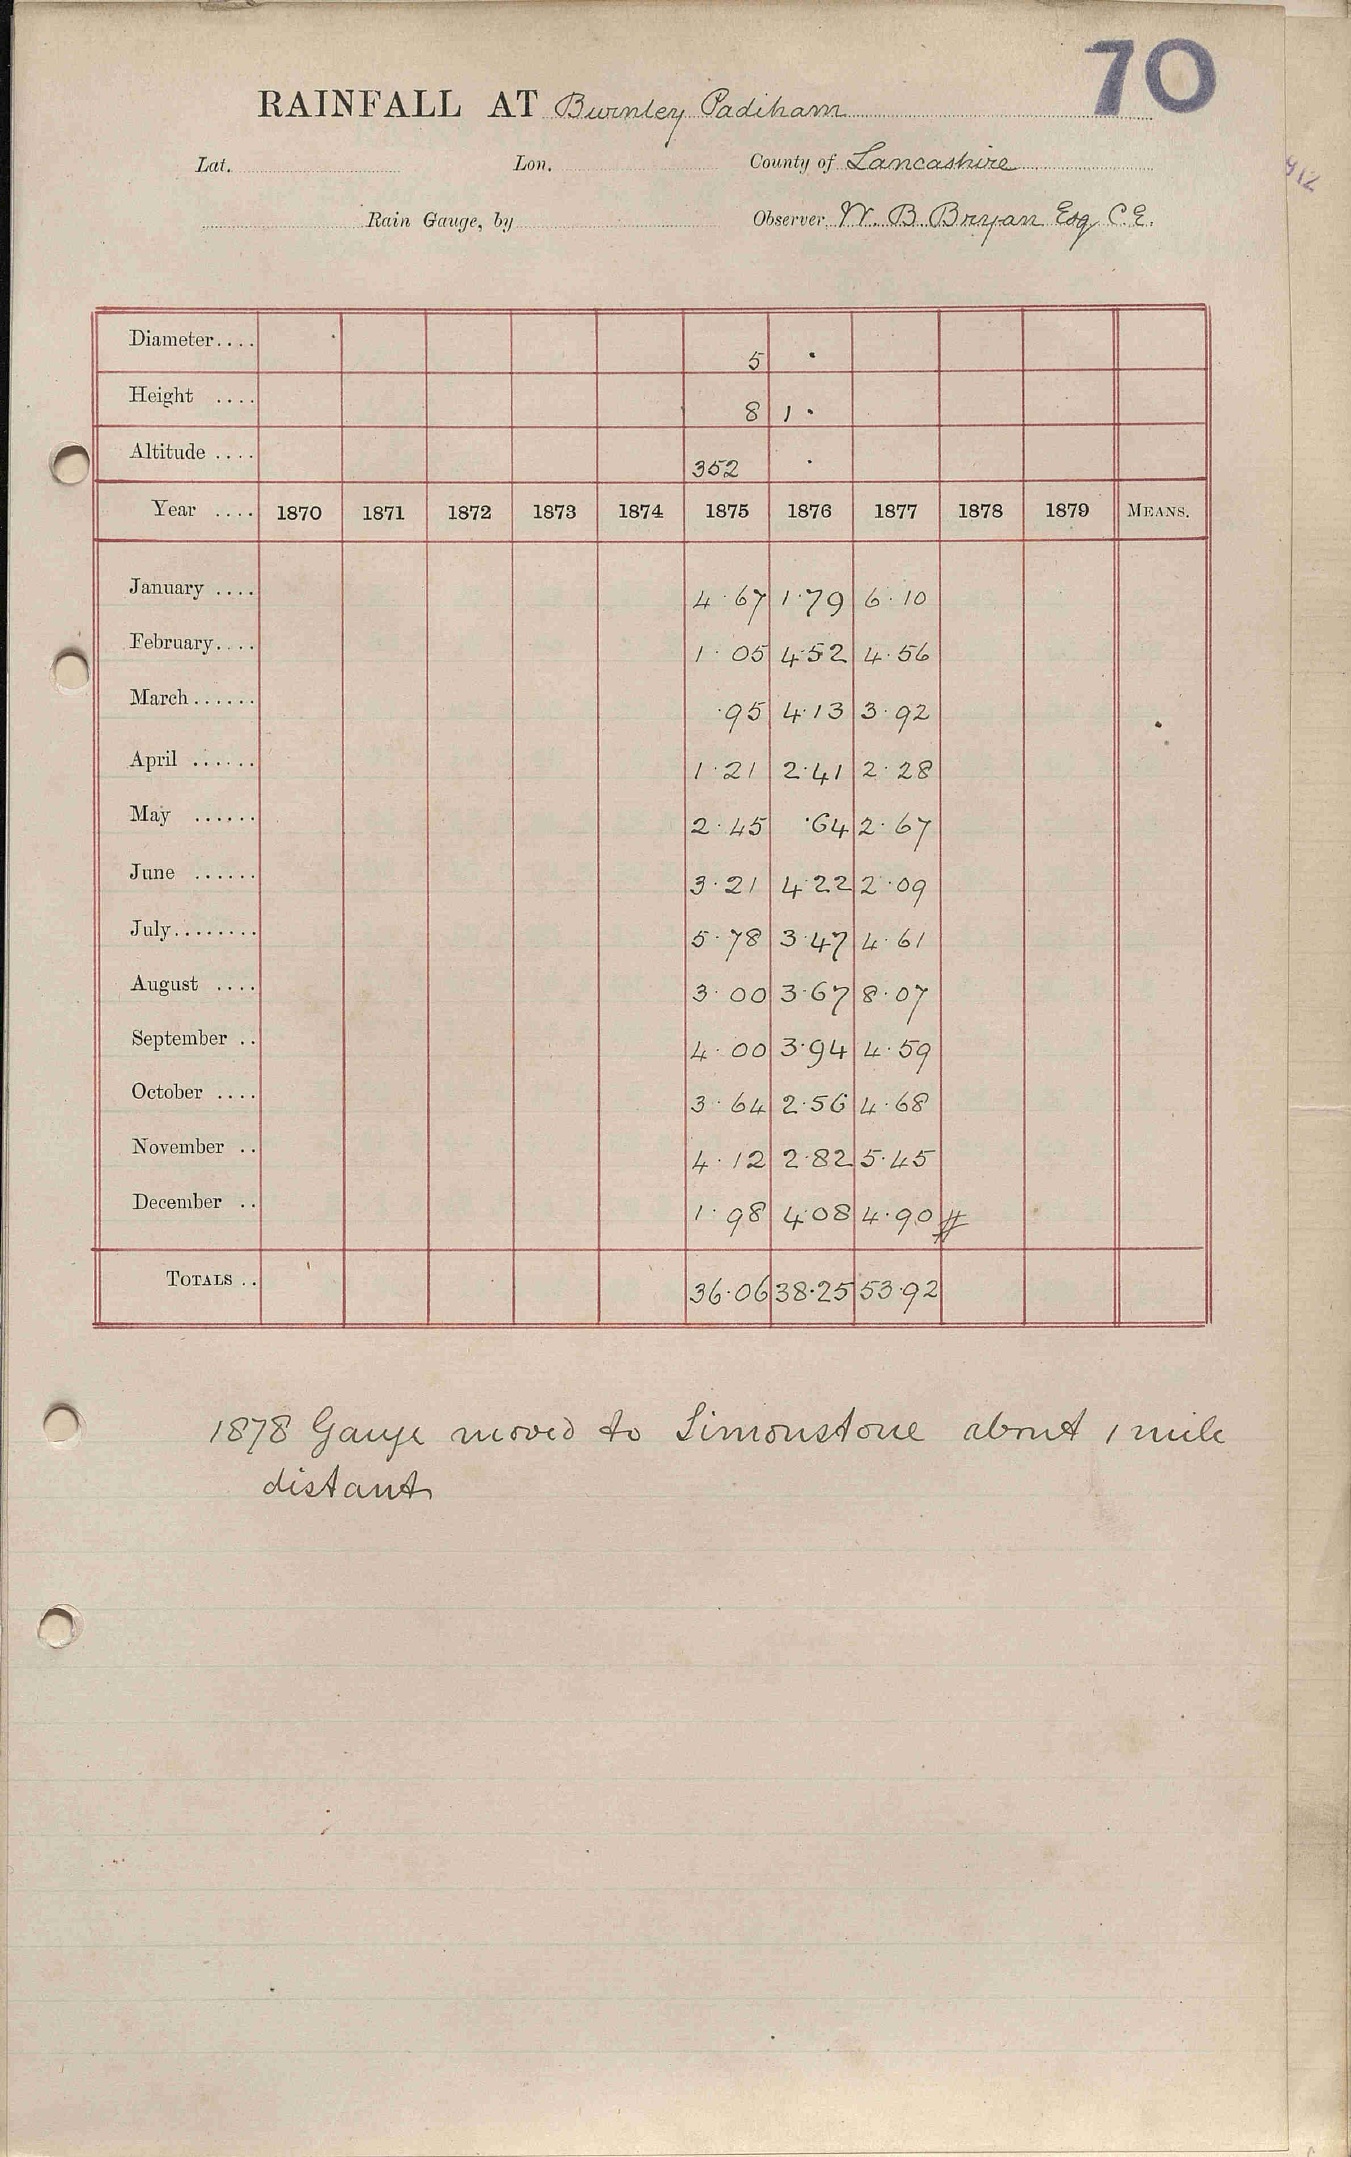 70
RAINFALL AT Burnley Padiham
Lat. Lon. County of Lancashire
912
Rain Gauge, by Observer W. B. Bryan Esq C.E.
Diameter.... 5 ·
Height .... 8 1 ·
Altitude .... 352 ·
Year .... 1870 1871 1872 1873 1874 1875 1876 1877 1878 1879 MEANS.
January .... 4·67 1·79 6·10
February.... 1·05 4·52 4·56
March...... ·95 4·13 3·92
April ...... 1·21 2·41 2·28
May ...... 2·45 ·64 2·67
June ...... 3·21 4·22 2·09
July........ 5·78 3·47 4·61
August .... 3·00 3·67 8·07
September .. 4·00 3·94 4·59
October .... 3·64 2·56 4·68
November .. 4·12 2·82 5·45
December .. 1·98 4·08 4·90 #
TOTALS .. 36·06 38·25 53·92
1878 Gauge moved to Simonstone about 1 mile
distant